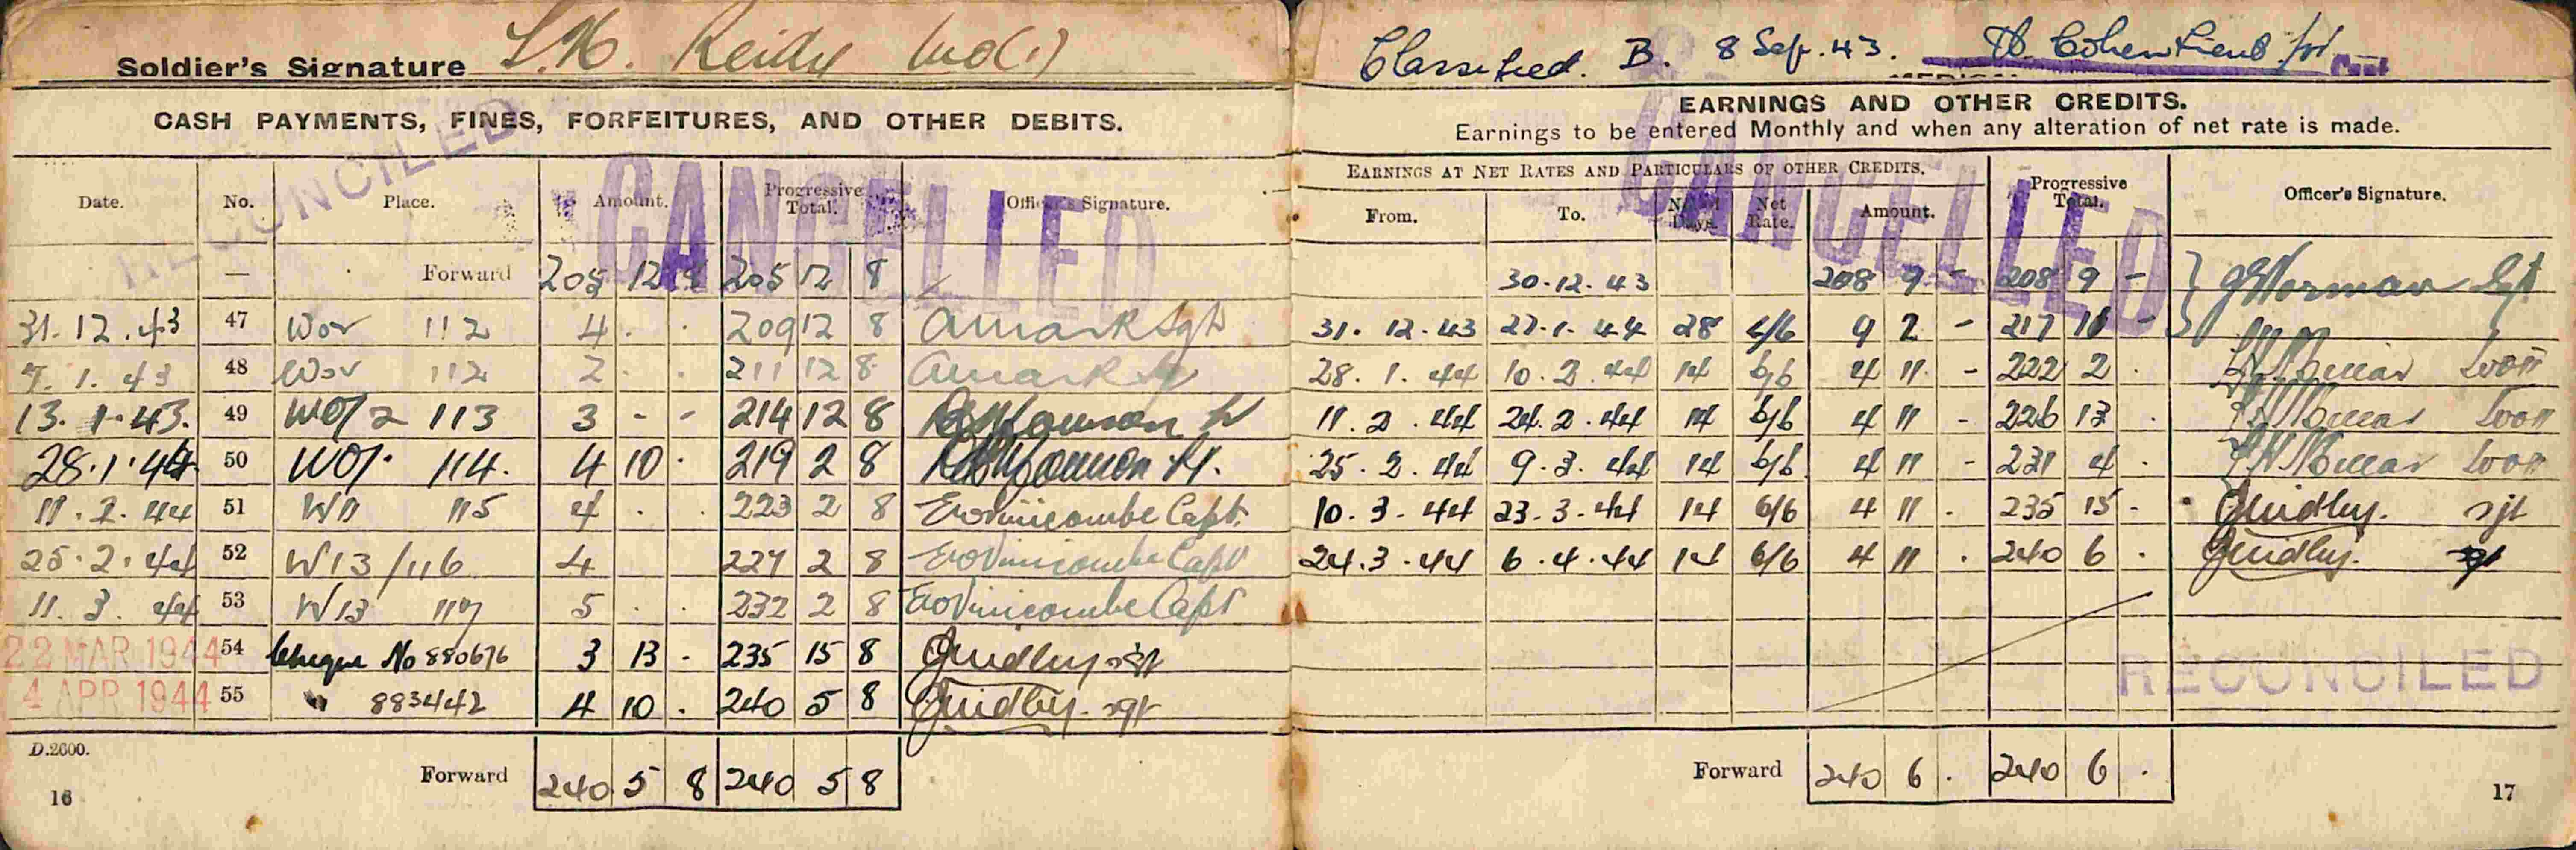 Soldier's Signature L.H. Reidy
CASH PAYMENTS, FINES, FORFEITURES, AND OTHER DEBITS.
RECONCILED
CANCELLED
Date. No. Place. Amount. Progressive Total. Officer's Signature.
— Forward 205 12 8 205 12 8
31.12.43 47 Wor 112 4 . . 209 12 8 AMark Sgt
7.1.43 48 Wor 112 2 . . 211 12 8 AMark
13.1.43. 49 113 3 - - 214 12 8
28.1.44 50 114. 4 10 . 219 2 8
11.2.44 51 W11 115 4 . . 223 2 8 Capt.
25.2.44 52 W13/116 4 227 2 8 Capt
11.3.44 53 W13 117 5 . . 232 2 8 Capt
22 MAR 1944 54 Cheque No 880676 3 13 - 235 15 8 sgt
4 APR 1944 55 " 883442 4 10 . 240 5 8 sgt
D.2600.
Forward 240 5 8 240 5 8
16
Classified. B. 8 Sep. 43.
EARNINGS AND OTHER CREDITS.
Earnings to be entered Monthly and when any alteration of net rate is made.
CANCELLED
EARNINGS AT NET RATES AND PARTICULARS OF OTHER CREDITS. Progressive Total. Officer's Signature.
From. To. No. of Days. Net Rate. Amount.
30.12.43 208 9 - 208 9 -
31.12.43 27.1.44 28 6/6 9 2 - 217 11 -
28.1.44 10.2.44 14 6/6 4 11 - 222 2 .
11.2.44 24.2.44 14 6/6 4 11 - 226 13 .
25.2.44 9.3.44 14 6/6 4 11 - 231 4 .
10.3.44 23.3.44 14 6/6 4 11 . 235 15 - sjt
24.3.44 6.4.44 14 6/6 4 11 . 240 6 .
RECONCILED
Forward 240 6 . 240 6 .
17